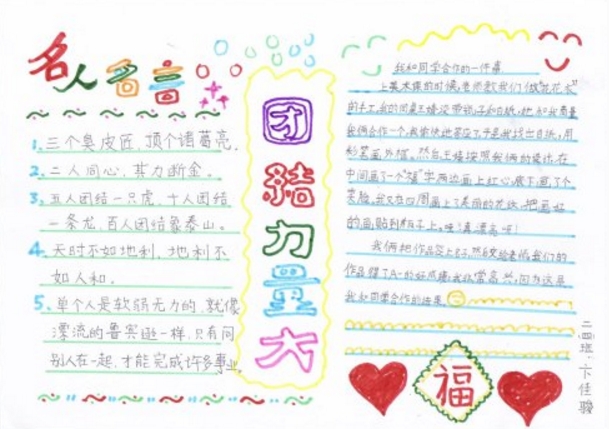 名人名言
1、三个臭皮匠，顶个诸葛亮。
2、二人同心，其力断金。
3、五人团结一只虎，十人团结
一条龙，百人团结象泰山。
4、天时不如地利，地利不
如人和。
5、单个人是软弱无力的，就像
漂流的鲁宾逊一样，只有同
别人在一起，才能完成许多事业。
团结力量大
我和同学合作的一件事
上美术课的时候，老师教我们做
的手工，我的同桌王臻没带钩子和白纸，他和我商量
我俩合作一个，我愉快地答应了，于是我找出白纸，用
彩笔画外框，然后王臻按照我俩的设计，在
中间画了一个"福"字，两边画上红心，底下画了个
笑脸，我又在四周画上了美丽的花纹，把画好
的画贴到板子上。哇！真漂亮呀！
我俩把作品交上去，然后老师给我们的
作品得了A-的好成绩，我非常高兴，因为这是
我和同学合作的结果。
福
二四班：卞佳骏